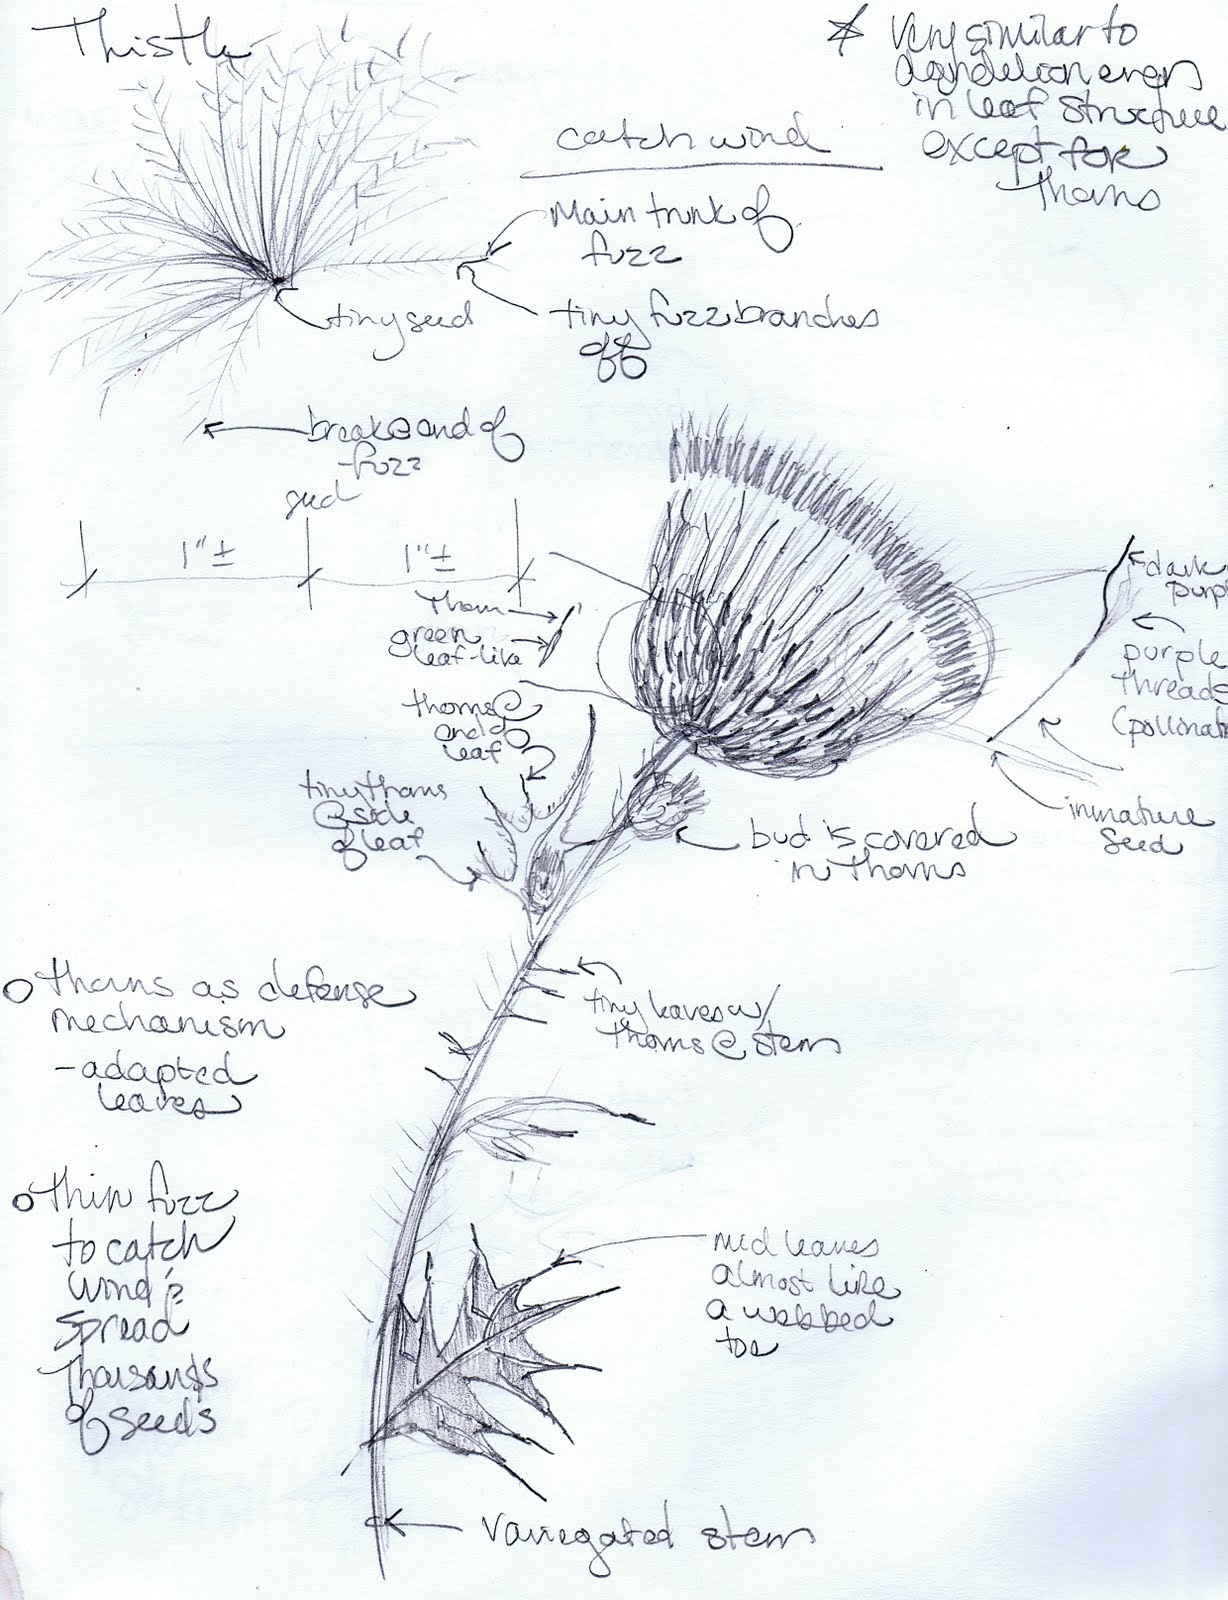 Thistle
* Very similar to
dandelion even
in leaf structure
except for
thorns
catch wind
Main trunk of
fuzz
tiny seed
tiny fuzz branches
off
breaks @ end of
fuzz
seed
1"± 1"±
Thorn
green
leaf-like
thorns @
end of
leaf
tiny thorns
@ side
of leaf
dark
purpl
purple
threads
(pollinat
immature
seed
bud is covered
in thorns
tiny leaves w/
thorns @ stem
o thorns as defense
mechanism
- adapted
leaves
o thin fuzz
to catch
wind &
spread
thousands
of seeds
med leaves
almost like
a webbed
toe
Variegated stem